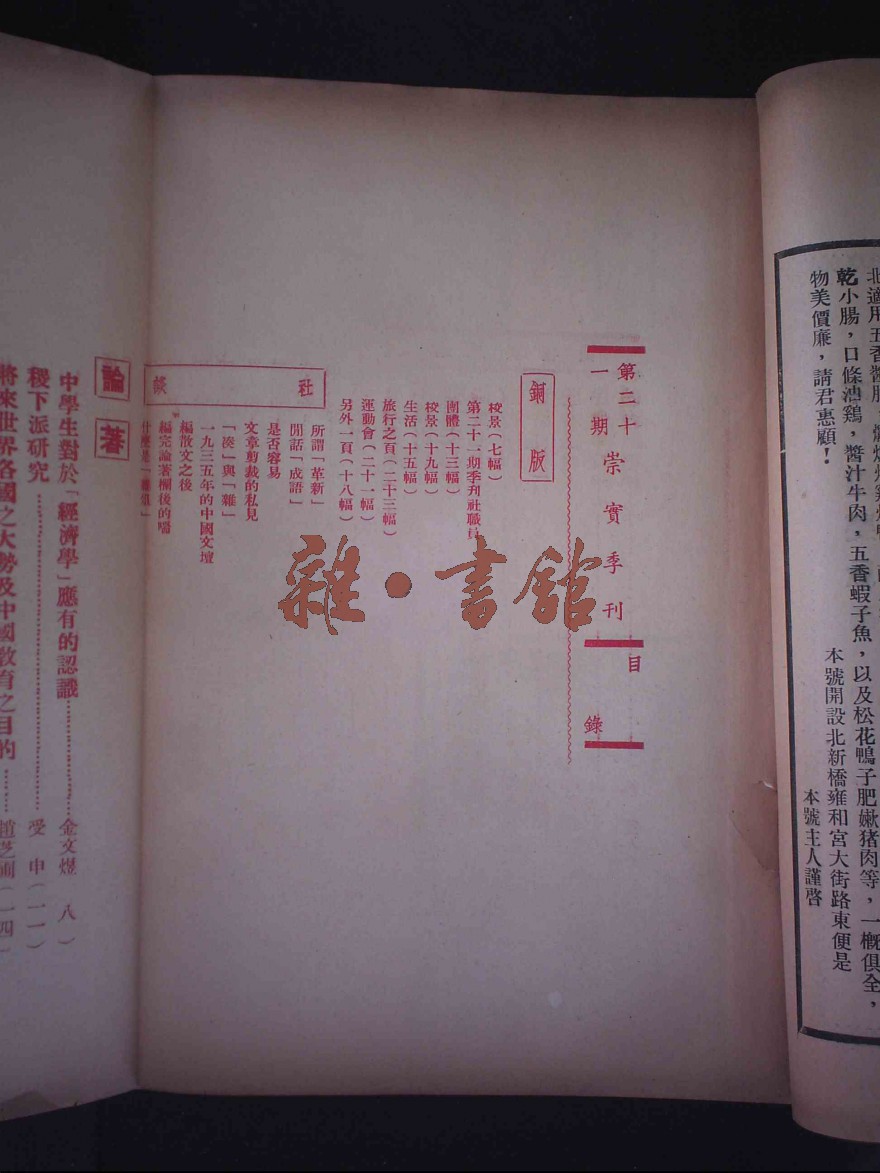 北適用五香醬肚
乾小腸，口條滷鷄，醬汁牛肉，五香蝦子魚，以及松花鴨子肥嫩猪肉等，一概俱全，
物美價廉，請君惠顧！
本號開設北新橋雍和宮大街路東便是
本號主人謹啓
第二十一期
崇實季刊
目錄
銅版
校景(七幅)
第二十一期季刊社職員
團體(十三幅)
校景(十九幅)
生活(十五幅)
旅行之頁(二十三幅)
運動會(二十一幅)
另外一頁(十八幅)
社談
所謂「革新」
閒話「成語」
是否容易
文章剪裁的私見
「湊」與「雜」
一九三五年的中國文壇
編散文之後
編完論著欄後的話
什麼是「雜俎」
論著
中學生對於「經濟學」應有的認識……金文煜　八)
稷下派研究……受　申(一一)
將來世界各國之大勢及中國教育之目的……趙芝(一四)
雜·書館